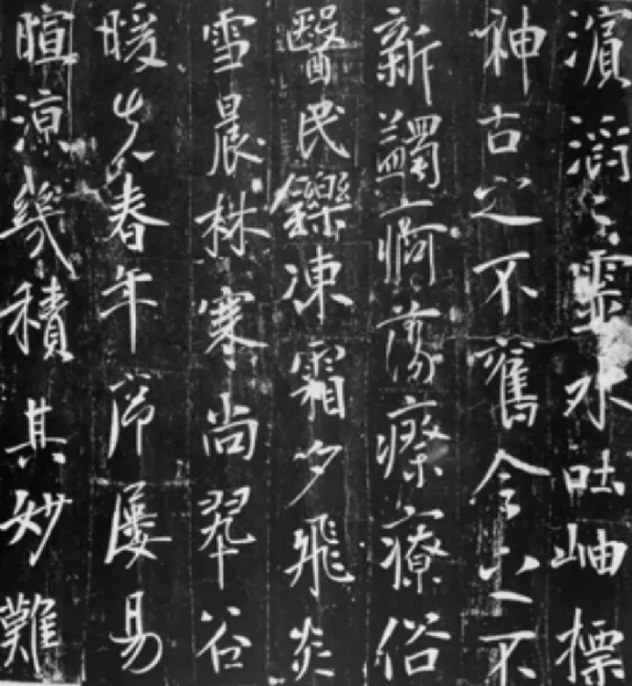 濱滔〻靈水吐岫標
神古之不舊今之不
新蠲痾蕩瘵療俗
醫民鑠凍霜夕飛炎
雪晨林寒尚翠谷
暖先春年序屢易
暄涼幾積其妙難